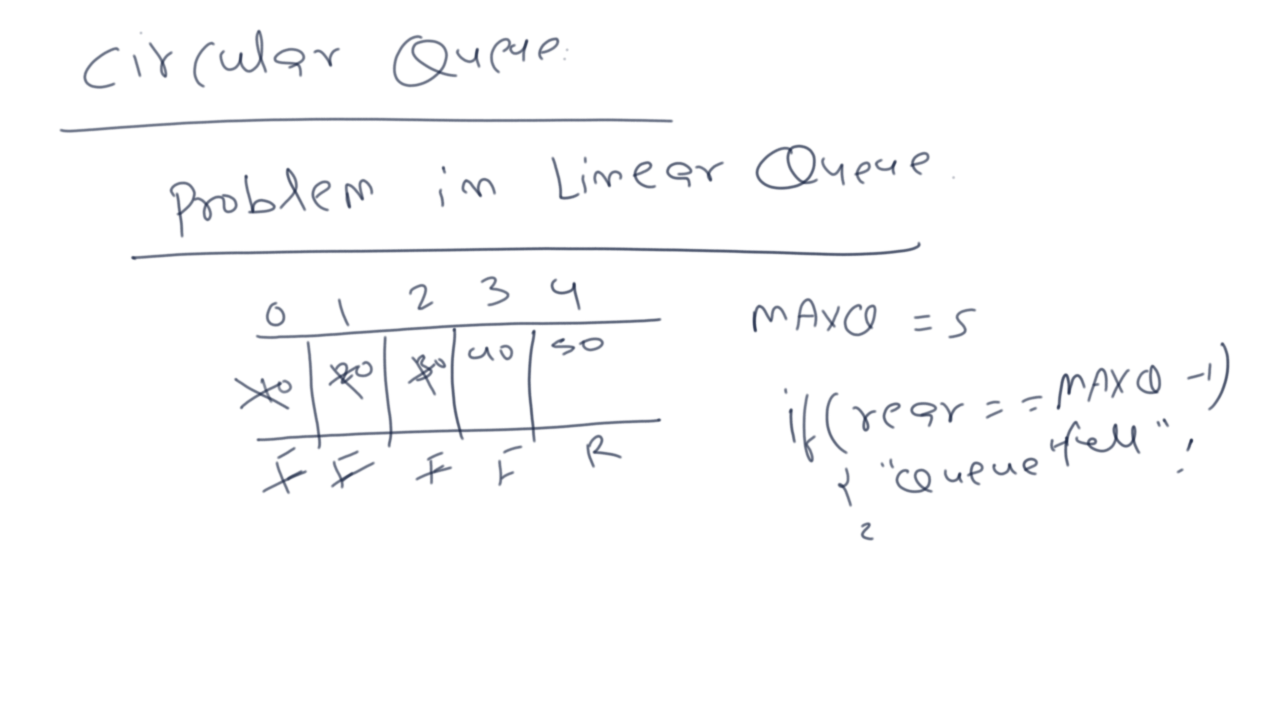 Circular Queue
Problem in Linear Queue
0 1 2 3 4
10 20 30 40 50
F F F F R
MAXQ = 5
if(rear == MAXQ -1)
{ "Queue full" ;
}